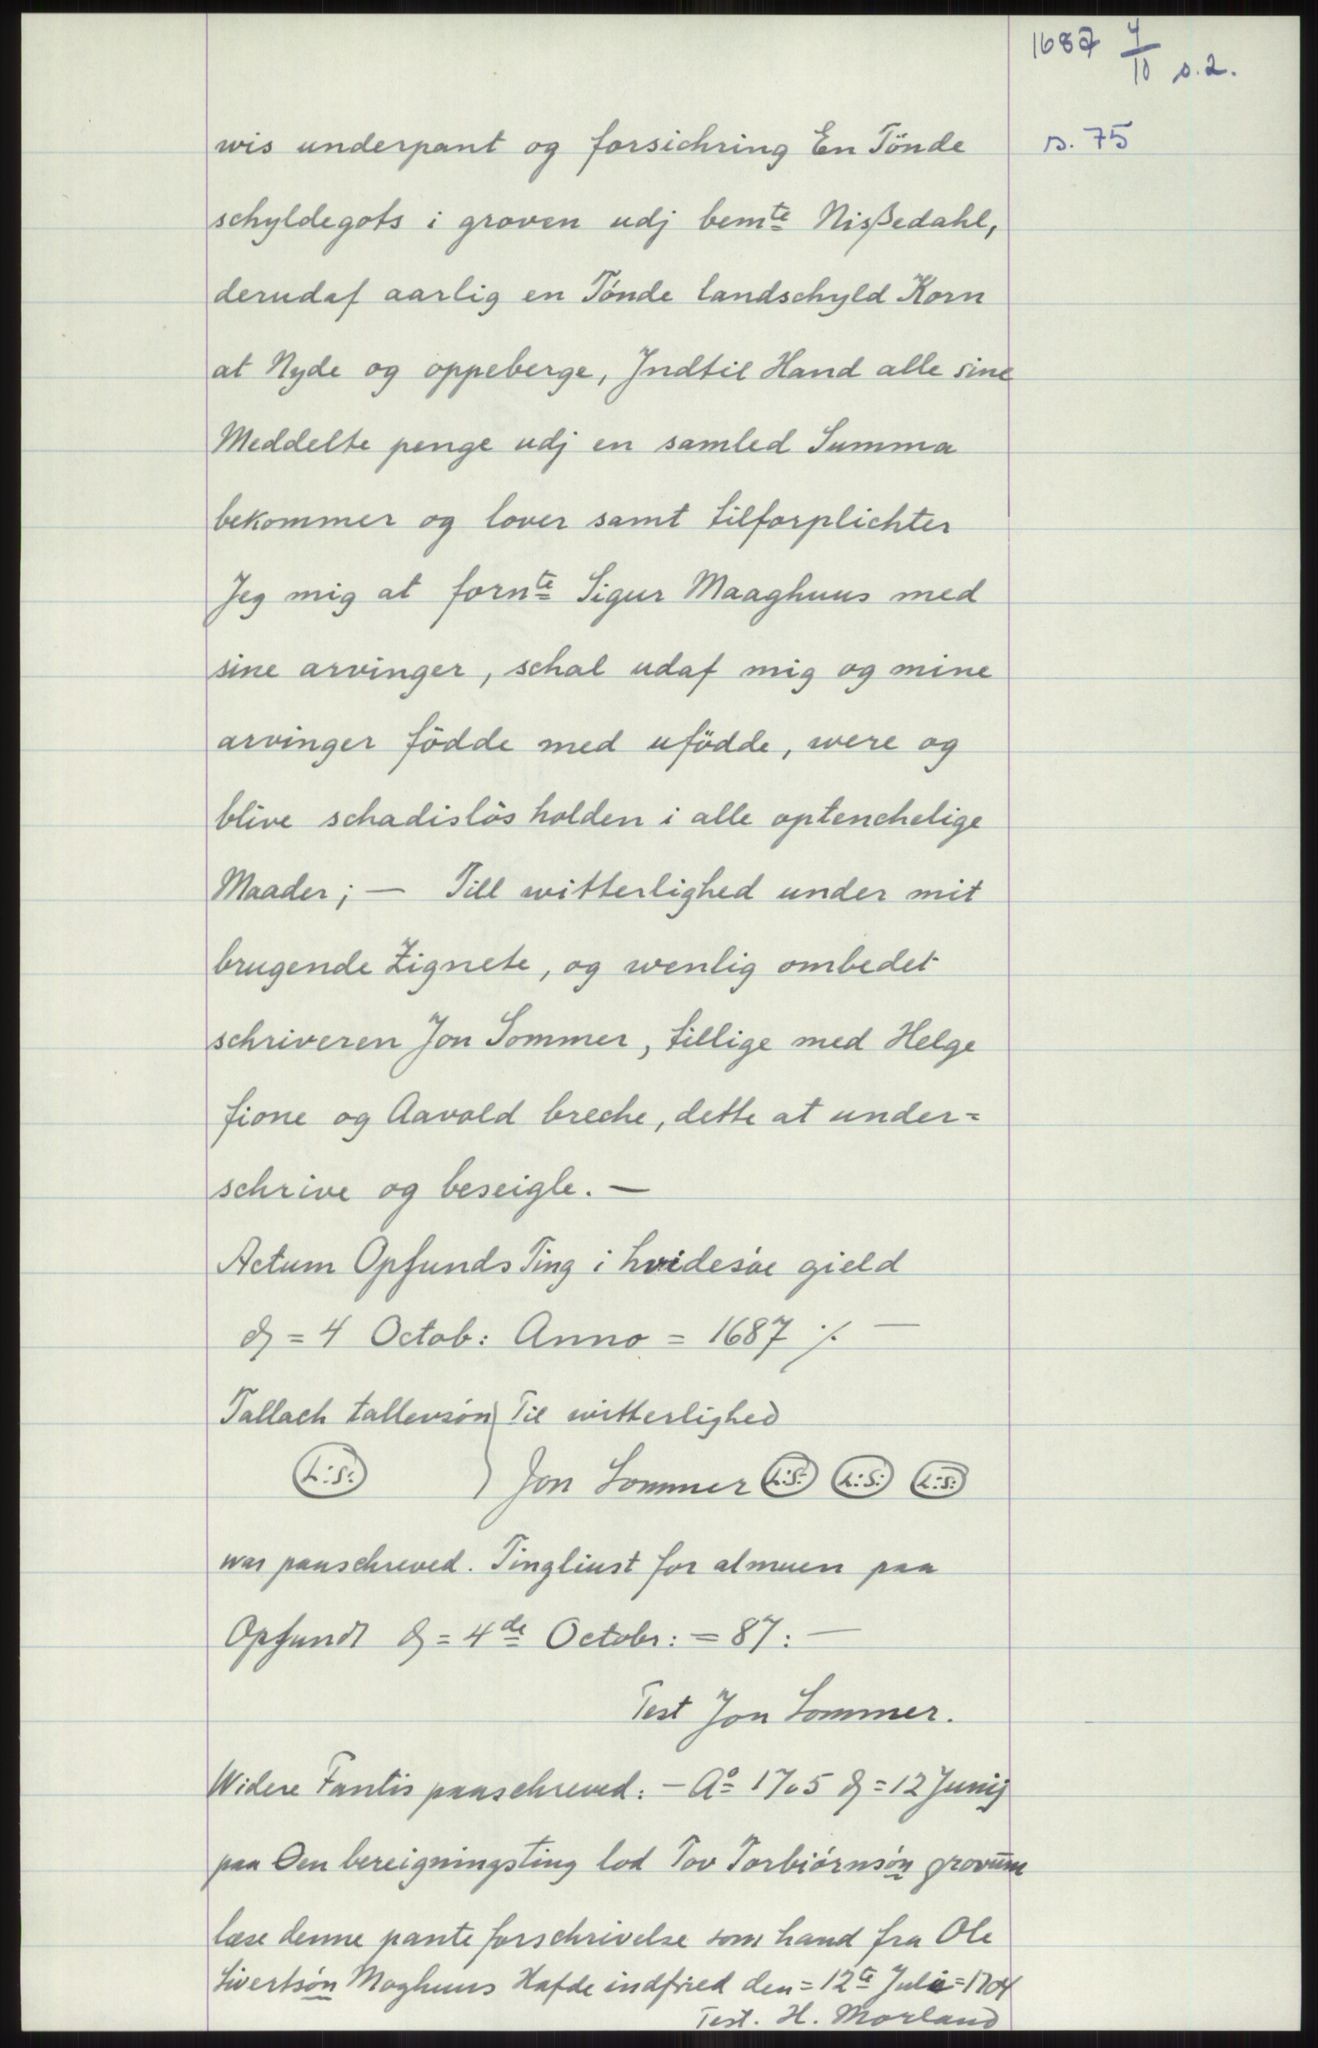 1687 4/10 s. 2.
s. 75
wis underpant og forsichring En Tönde
schyldegots i groven udj bemte Nisßedahl,
derudaf aarlig en Tónde landschyld Korn
at Nyde og oppeberge, Jndtil Hand alle sine
Meddelte penge udj en samled Summa
bekommer og lover samt tilforplichter
Jeg mig at fornte Sigur Maaghuus med
sine arvinger, schal udaf mig og mine
arvinger födde med ufödde, were og
blive schadislös holden i alle optenchelige
Maader; — Till witterlighed under mit
brugende Zignete, og wenlig ombedet
schriveren Jon Sommer, tillige med Helge
fione og Aavold breche, dette at under=
schrive og beseigle. —
Actum Opfunds Ting i hvidesóe gield
d = 4 Octob: Anno = 1687 ⁒ —
Tallach tallevsón } Til witterlighed
L:S: Jon Sommer L:S: L:S: L:S:
war paaschreved. Tingliust for almuen paa
Opfundt d = 4de Octobr: = 87: —
Test Jon Sommer.
Widere Fantis paaschreved: — Ao 1705 d = 12 Junij
paa Öen bereigningsting lod Tov Torbiórnsón grovum
læse denne pante forschrivelse som hand fra Ole
Sivertsón Moghuus Hafde indfried den = 12te Julii = 1704
Test. H. Morland